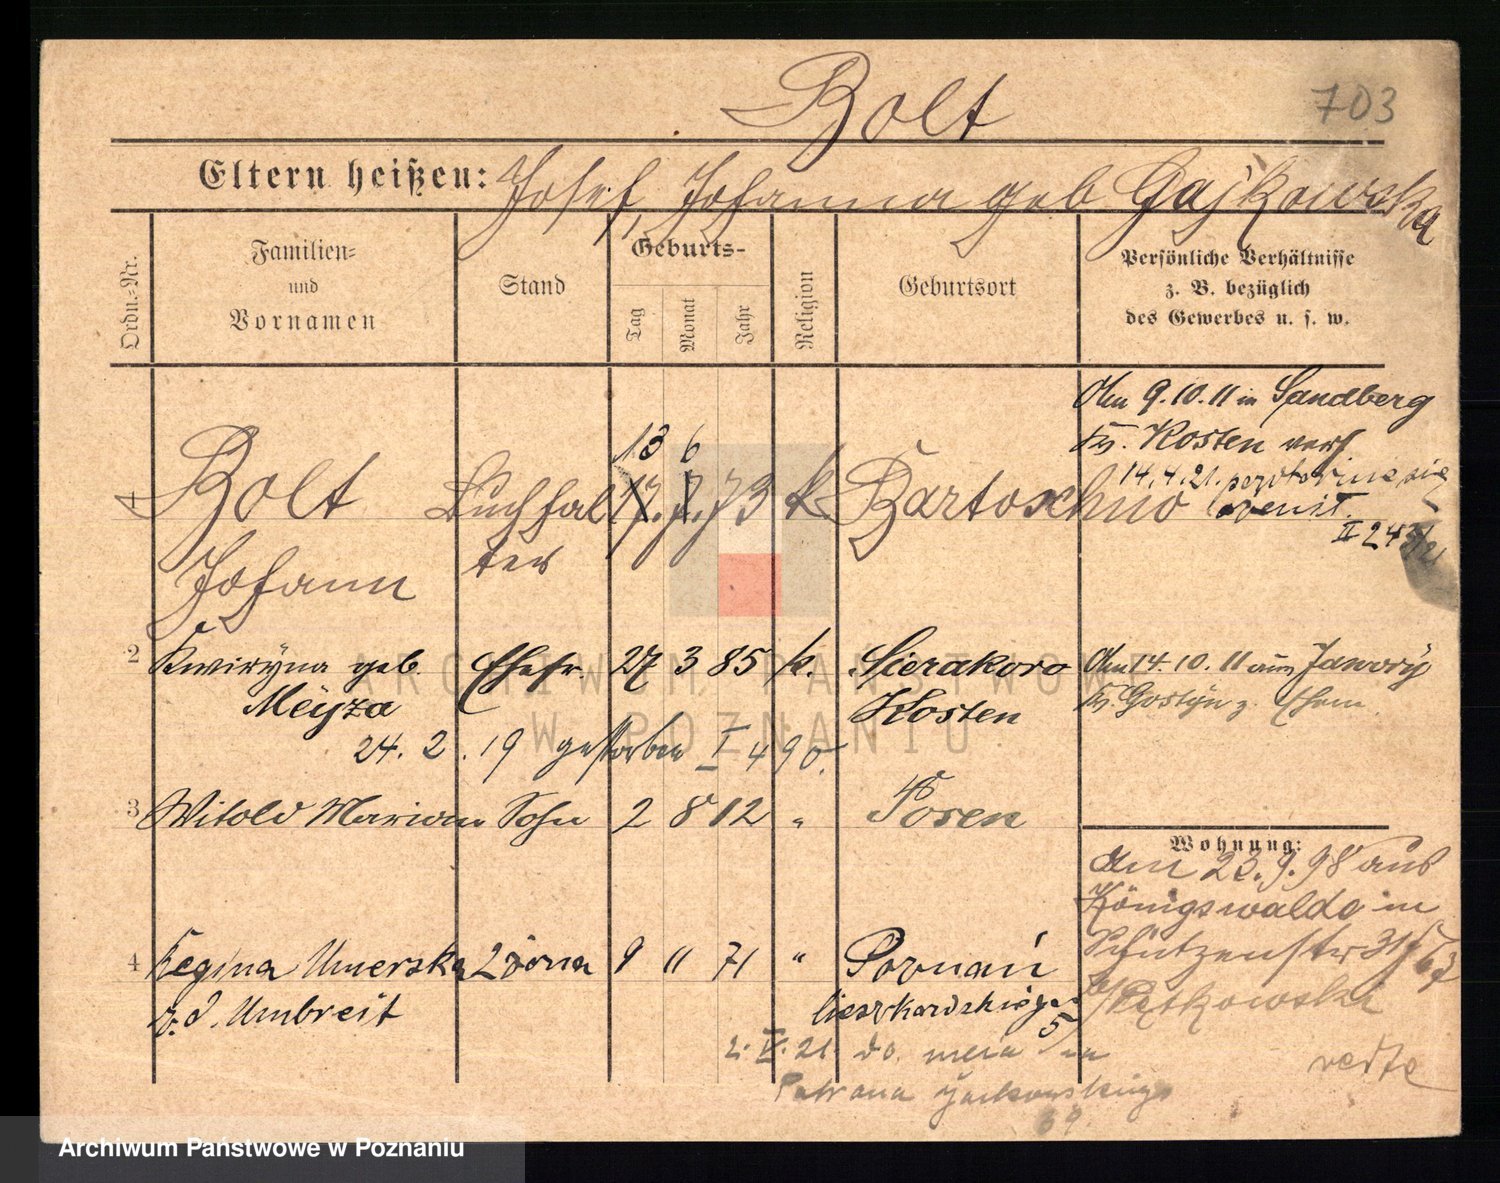 Bolt
703
Eltern heißen: Josef, Johanna geb Gajkowska
Ordn.-Nr.
Familien-
und
Vornamen
Stand
Geburts-
Tag
Monat
Jahr
Religion
Geburtsort
Persönliche Verhältnisse
z. B. bezüglich
des Gewerbes u. s. w.
13 6
1 Bolt Buchhal 17. 7. 73 k. Bartoschno
ter
Johann
Am 9.10.11 in Sandberg
Kr. Kosten verh
14.4.21.
II
2 Kwiryna geb. Ehefr. 27 3 85 k. Sierakowo
Meyza Kosten
Am 14.10.11 aus Jawory
Kr. Gostyn z. Ehem.
24. 2. 19 gestorben I 490.
3 Witold Marian Sohn 2 8 12 " Posen
Wohnung:
am 23.9.98 aus
Königswalde in
Schützenstr 31
b/ Piętkowski
4 Regina Umerska żona 9 11 71 " Poznań
z.d. Umbreit
5
2. V. 21. do
Patrona Jackowskiego
69.
ARCHIWUM PAŃSTWOWE
W POZNANIU
Archiwum Państwowe w Poznaniu